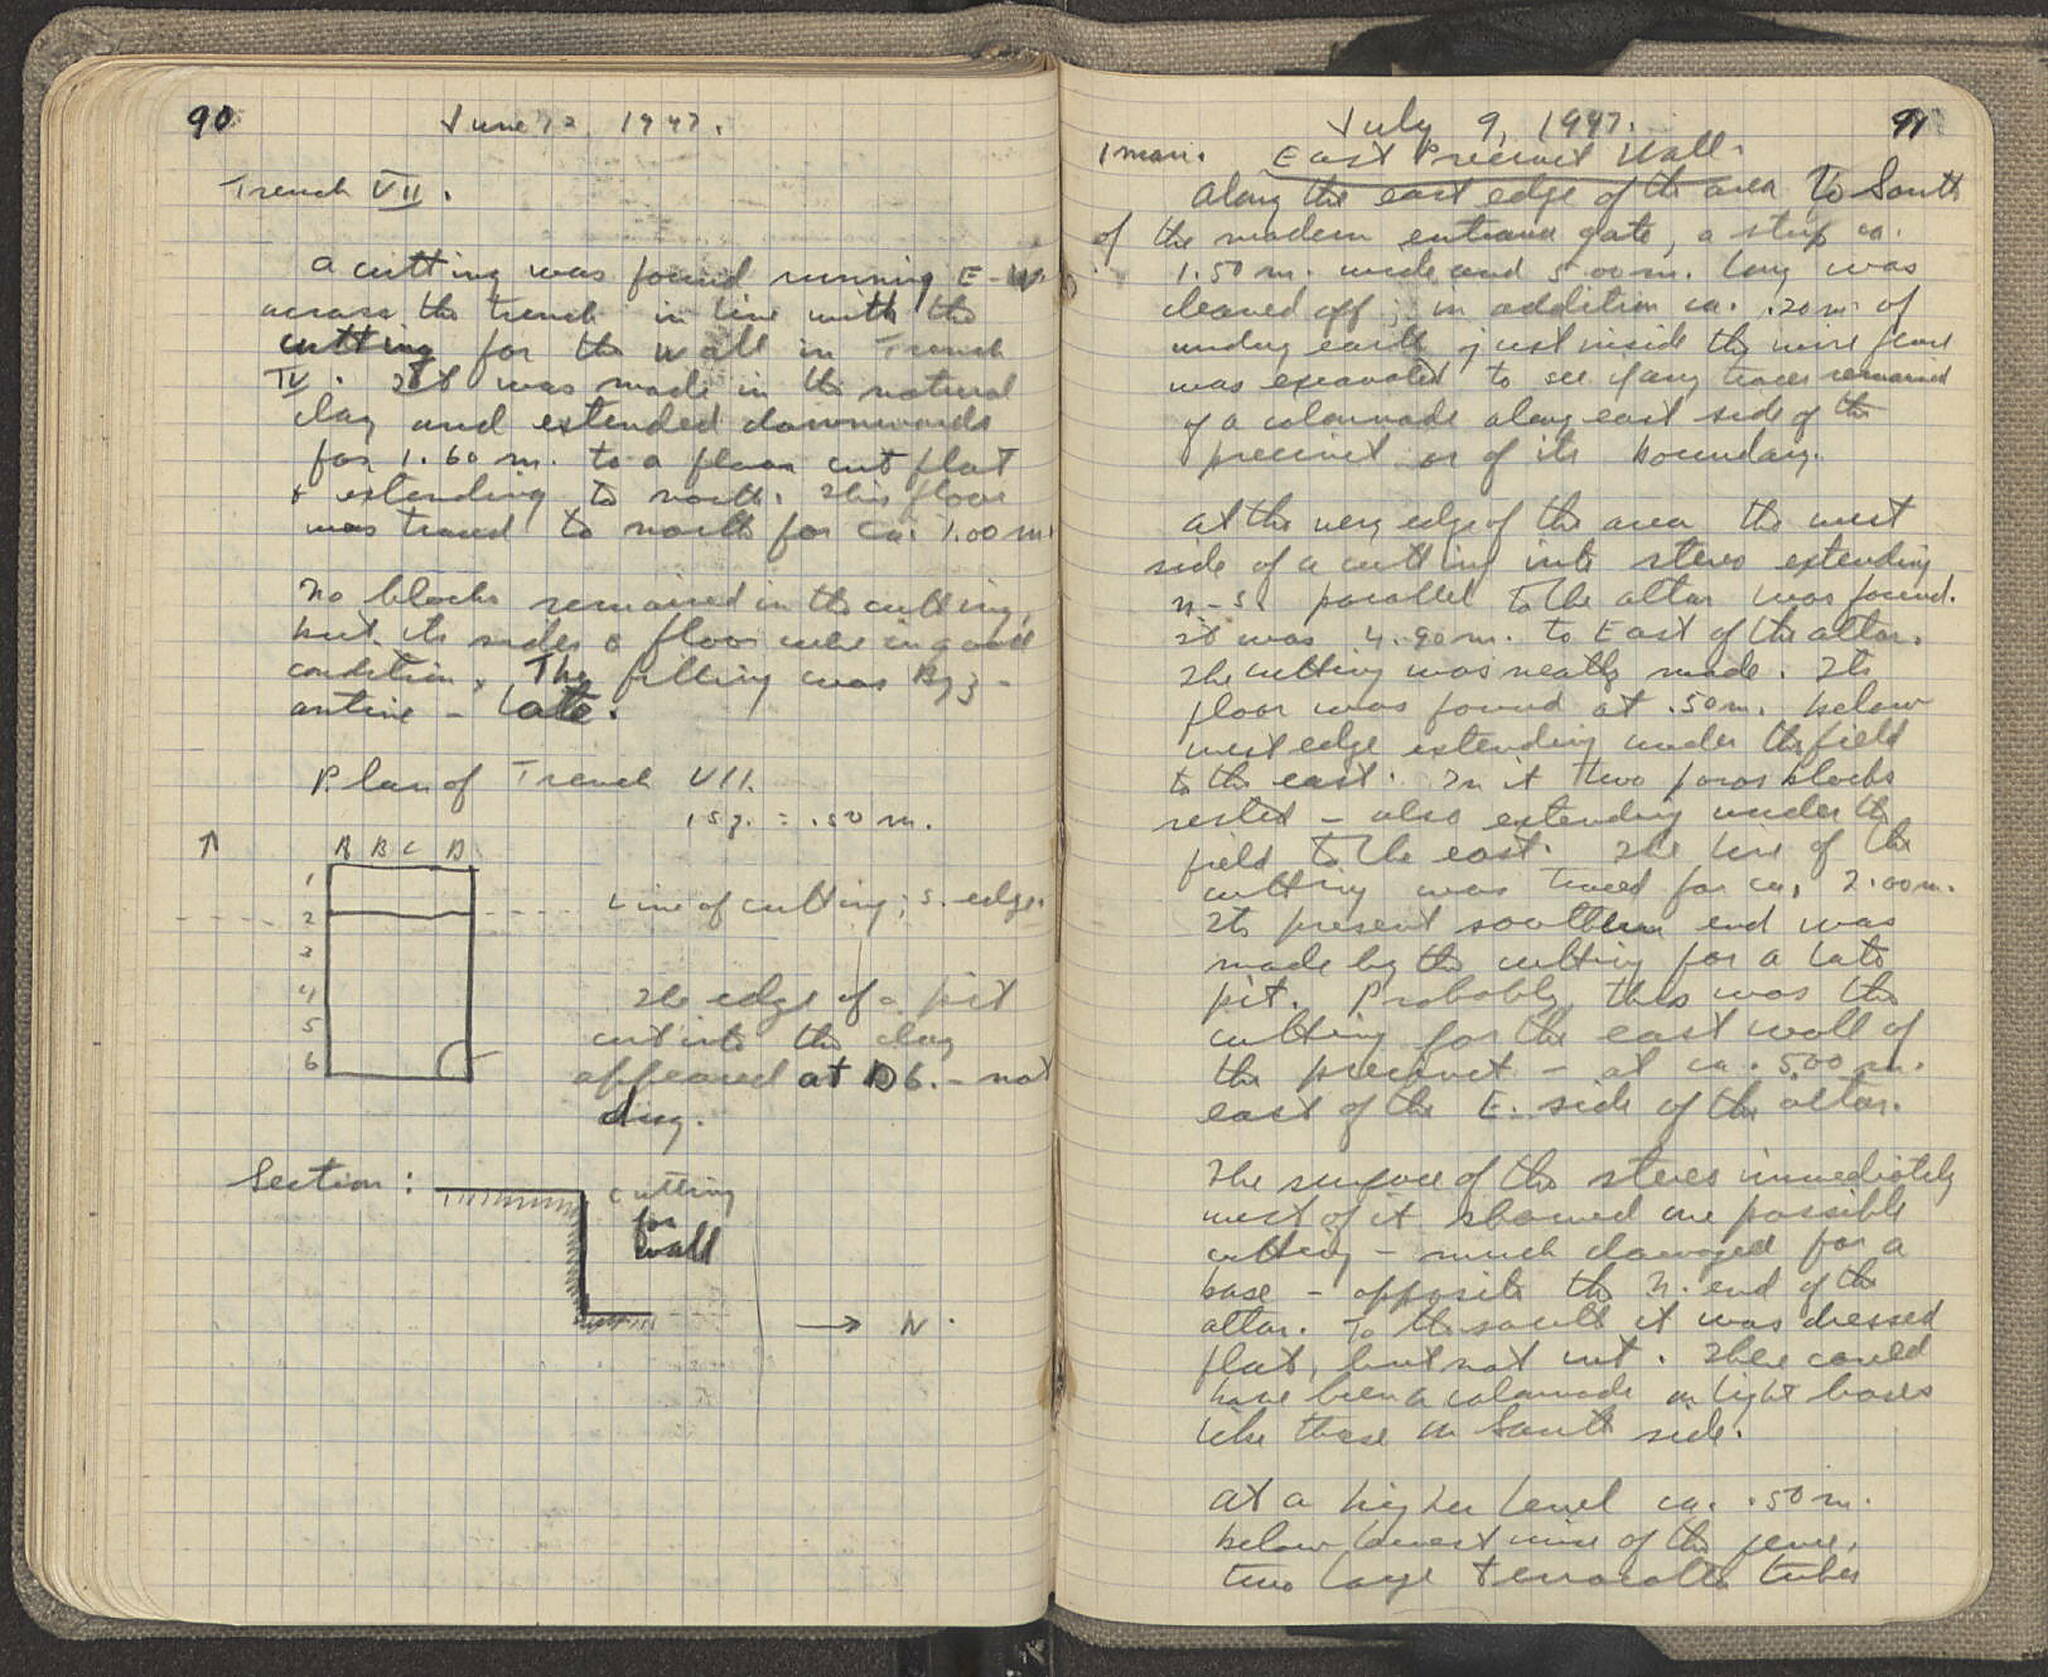 90
June 12, 1947.
Trench VII.
A cutting was found running E-W.
across the trench in line with the
cutting for the wall in Trench
IV. It was made in the natural
clay and extended downwards
for 1.60 m. to a floor cut flat
& extending to north. This floor
was traced to north for ca. 1.00 m.
No blocks remained in the cutting,
but its sides & floor were in good
condition. The filling was Byz-
antine - late.
Plan of Trench VII.
1 sq. = .50 m.
A B C D
1
2
3
4
5
6
Line of cutting; S. edge.
The edge of a pit
cut into the clay
appeared at D6. - not
dug.
Section:
cutting
for
wall
→ N.
July 9, 1947.
91
1 man. East Precinct Wall.
Along the east edge of the area to South
of the modern entrance gate, a strip ca.
1.50 m. wide and 5.00 m. long was
cleaned off; in addition ca. .20 m. of
earth just inside the wire fence
was excavated to see if any traces remained
of a colonnade along east side of the
precinct or of its boundary.
At the very edge of the area the west
side of a cutting into stereo extending
N-S. parallel to the altar was found.
It was 4.90 m. to East of the altar.
The cutting was neatly made. Its
floor was found at .50 m. below
west edge extending under the field
to the east. In it two poros blocks
rested - also extending under the
field to the east. The line of the
cutting was traced for ca. 2.00 m.
Its present southern end was
made by the cutting for a late
pit. Probably this was the
cutting for the east wall of
the precinct - at ca. 5.00 m.
east of the E. side of the altar.
The surface of the stereo immediately
west of it showed one possible
cutting - much damaged for a
base - opposite the N. end of the
altar. To the south it was dressed
flat, but not cut. There could
have been a colonnade on light bases
like those on South side.
At a higher level ca. .50 m.
below lowest wire of the fence,
two large terracotta tubes